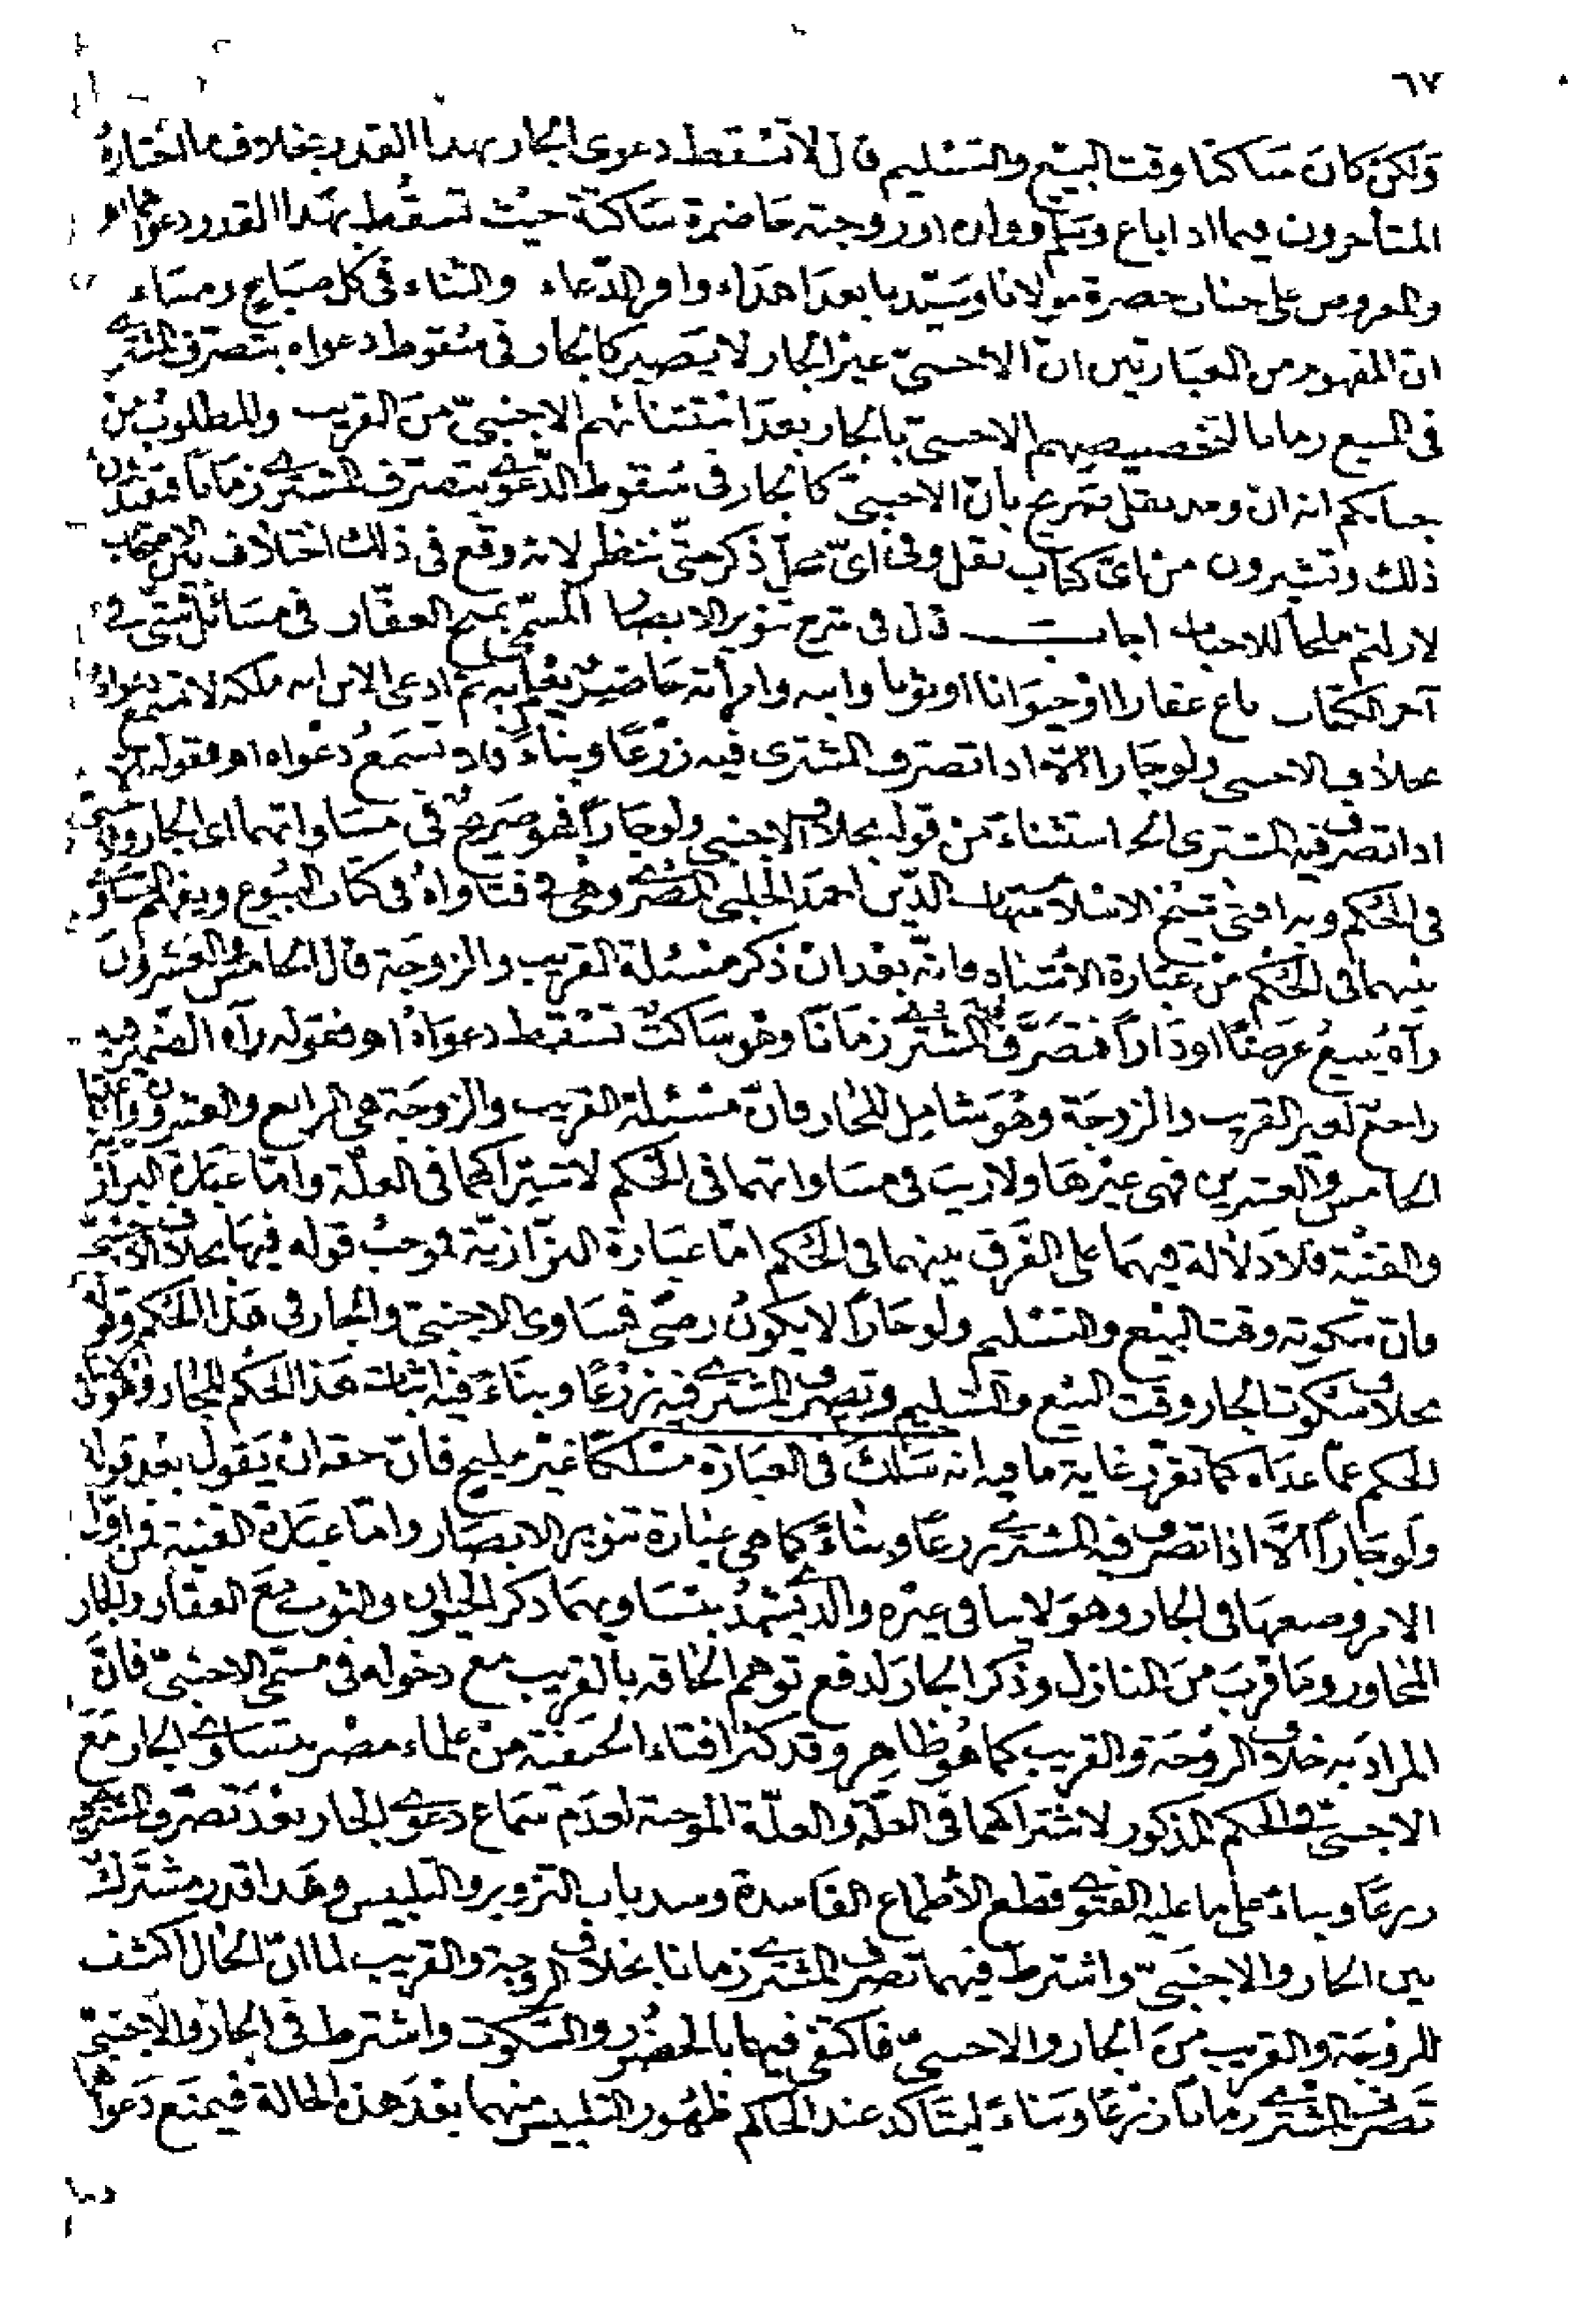 ٦٧
ولكن كان ساكتا وقت البيع والتسليم قال لا تسقط دعوى الجار بهذا القدر بخلاف ما اختاره
المتأخرون فيما اذا باع وسلم وولده او زوجته حاضرة ساكتة حيث تسقط بهذا القدر دعواهما اهـ
والمعروض على جناب حضرة مولانا وسيدنا بعد اهداء وافر الدعاء والثناء فى كل صباح ومساء
ان المفهوم من العبارتين ان الاجنبى غير الجار لا يصير كالجار فى سقوط دعواه بتصرف المشترى
فى المبيع زمانا لتخصيصهم الاجنبى بالجار بعد استثنائهم الاجنبى من القريب والمطلوب من
جنابكم انه ان وجد نقل صريح بأن الاجنبى كالجار فى سقوط الدعوى بتصرف المشترى زمانا فتفيدون
ذلك وتشيرون من اى كتاب نقل وفى اى محل ذكر حتى ننظر لانه وقع فى ذلك اختلاف بين الاصحاب
لا زلتم ملجأ للاحباب اجاب قال فى شرح تنوير الابصار المسمى بمنح الغفار فى مسائل شتى فى
آخر الكتاب باع عقارا او حيوانا او ثوبا وابنه وامرأته حاضر يعلم به ثم ادعى الابن انه ملكه لا تسمع دعواه
بخلاف الاجنبى ولو جارا الا اذا تصرف المشترى فيه زرعا وبناء فلا تسمع دعواه اهـ فقوله الا
اذا تصرف فيه المشترى الخ استثناء من قوله بخلاف الاجنبى ولو جارا فهو صريح فى مساواتهما اى الجار والاجنبى
فى الحكم وبه افتى شيخ الاسلام شهاب الدين احمد الحلبى المصرى وهى فى فتاواه فى كتاب البيوع ويفهم التساوى
بينهما فى الحكم من عبارة الاشباه فانه بعد ان ذكر مسئلة القريب والزوجة قال الخامس والعشرون
رآه يبيع عرضا او دارا فتصرف فيه المشترى زمانا وهو ساكت تسقط دعواه اهـ فقوله رآه الضمير فيه
راجع لغير القريب والزوجة وهو شامل للجار فان مسئلة القريب والزوجة هى الرابع والعشرون واما
الخامس والعشرين فهى غيرها ولا ريب فى مساواتهما فى الحكم لاشتراكهما فى العلة واما عبارة البزازية
والقنية فلا دلالة فيهما على الفرق بينهما فى الحكم اما عبارة البزازية فوجب قوله فيها بخلاف الاجنبى
فان سكوته وقت البيع والتسليم ولو جارا لا يكون رضى فساوى الاجنبى والجار فى هذا الحكم وقوله
بخلاف سكوت الجار وقت البيع والتسليم وتصرف المشترى فيه زرعا وبناء فيه اثبات هذا الحكم للجار
الحكم عما عداه كما تقرر غاية ما فيه انه سلك فى العبارة مسلكا غير مليح فان حقه ان يقول بعد قوله
ولو جارا الا اذا تصرف فيه المشترى زرعا وبناء كما هى عبارة تنوير الابصار واما عبارة القنية فمن اول
الامر وضعها فى الجار وهو لا ينافى غيره والذى يشهد بتساويهما ذكر الحيوان والثوب مع العقار والجار
المجاور وما قرب من المنازل وذكر الجار لدفع توهم الحاقه بالقريب مع دخوله فى مسمى الاجنبى فان
المراد به خلاف الزوجة والقريب كما هو ظاهر وقد كثر افتاء الحنفية من علماء مصر بتساوى الجار مع
الاجنبى فى الحكم المذكور لاشتراكهما فى العلة والعلة الموجبة لعدم سماع دعوى الجار بعد تصرف المشترى
زرعا وبناء على ما عليه الفتوى قطع الأطماع الفاسدة وسد باب التزوير والتلبيس وهذا قدر مشترك
بين الجار والاجنبى واشترط فيهما تصرف المشترى زمانا بخلاف الزوجة والقريب لما ان الحال اكشف
للزوجة والقريب من الجار والاجنبى فاكتفى فيها بالحضور والسكوت واشترط فى الجار والاجنبى
تصرف المشترى زمانا زرعا وبناء ليتأكد عند الحاكم ظهور التلبيس منهما بعد هذه الحالة فيمنع دعواهما